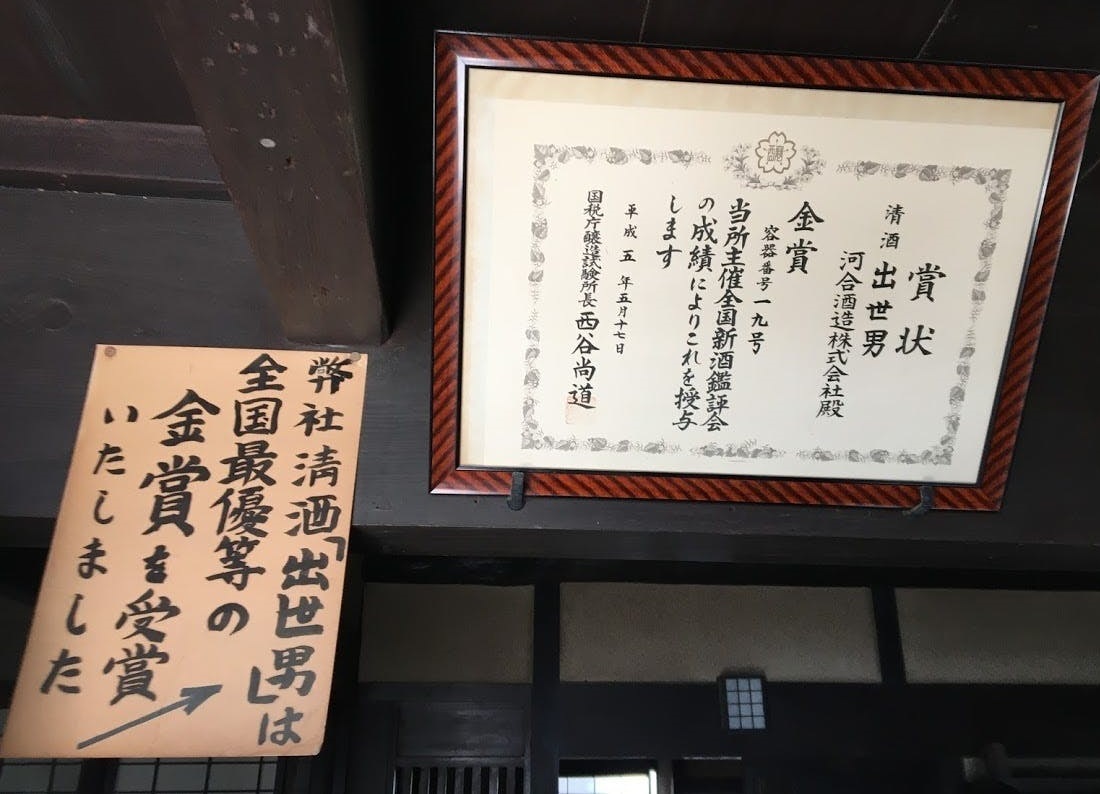 賞状
清酒 出世男
河合酒造株式会社殿
金賞
容器番号一九号
当所主催全国新酒鑑評会
の成績によりこれを授与
します
平成五年五月十七日
国税庁醸造試験所長 西谷尚道
弊社清酒「出世男」は
全国最優等の
金賞を受賞
いたしました